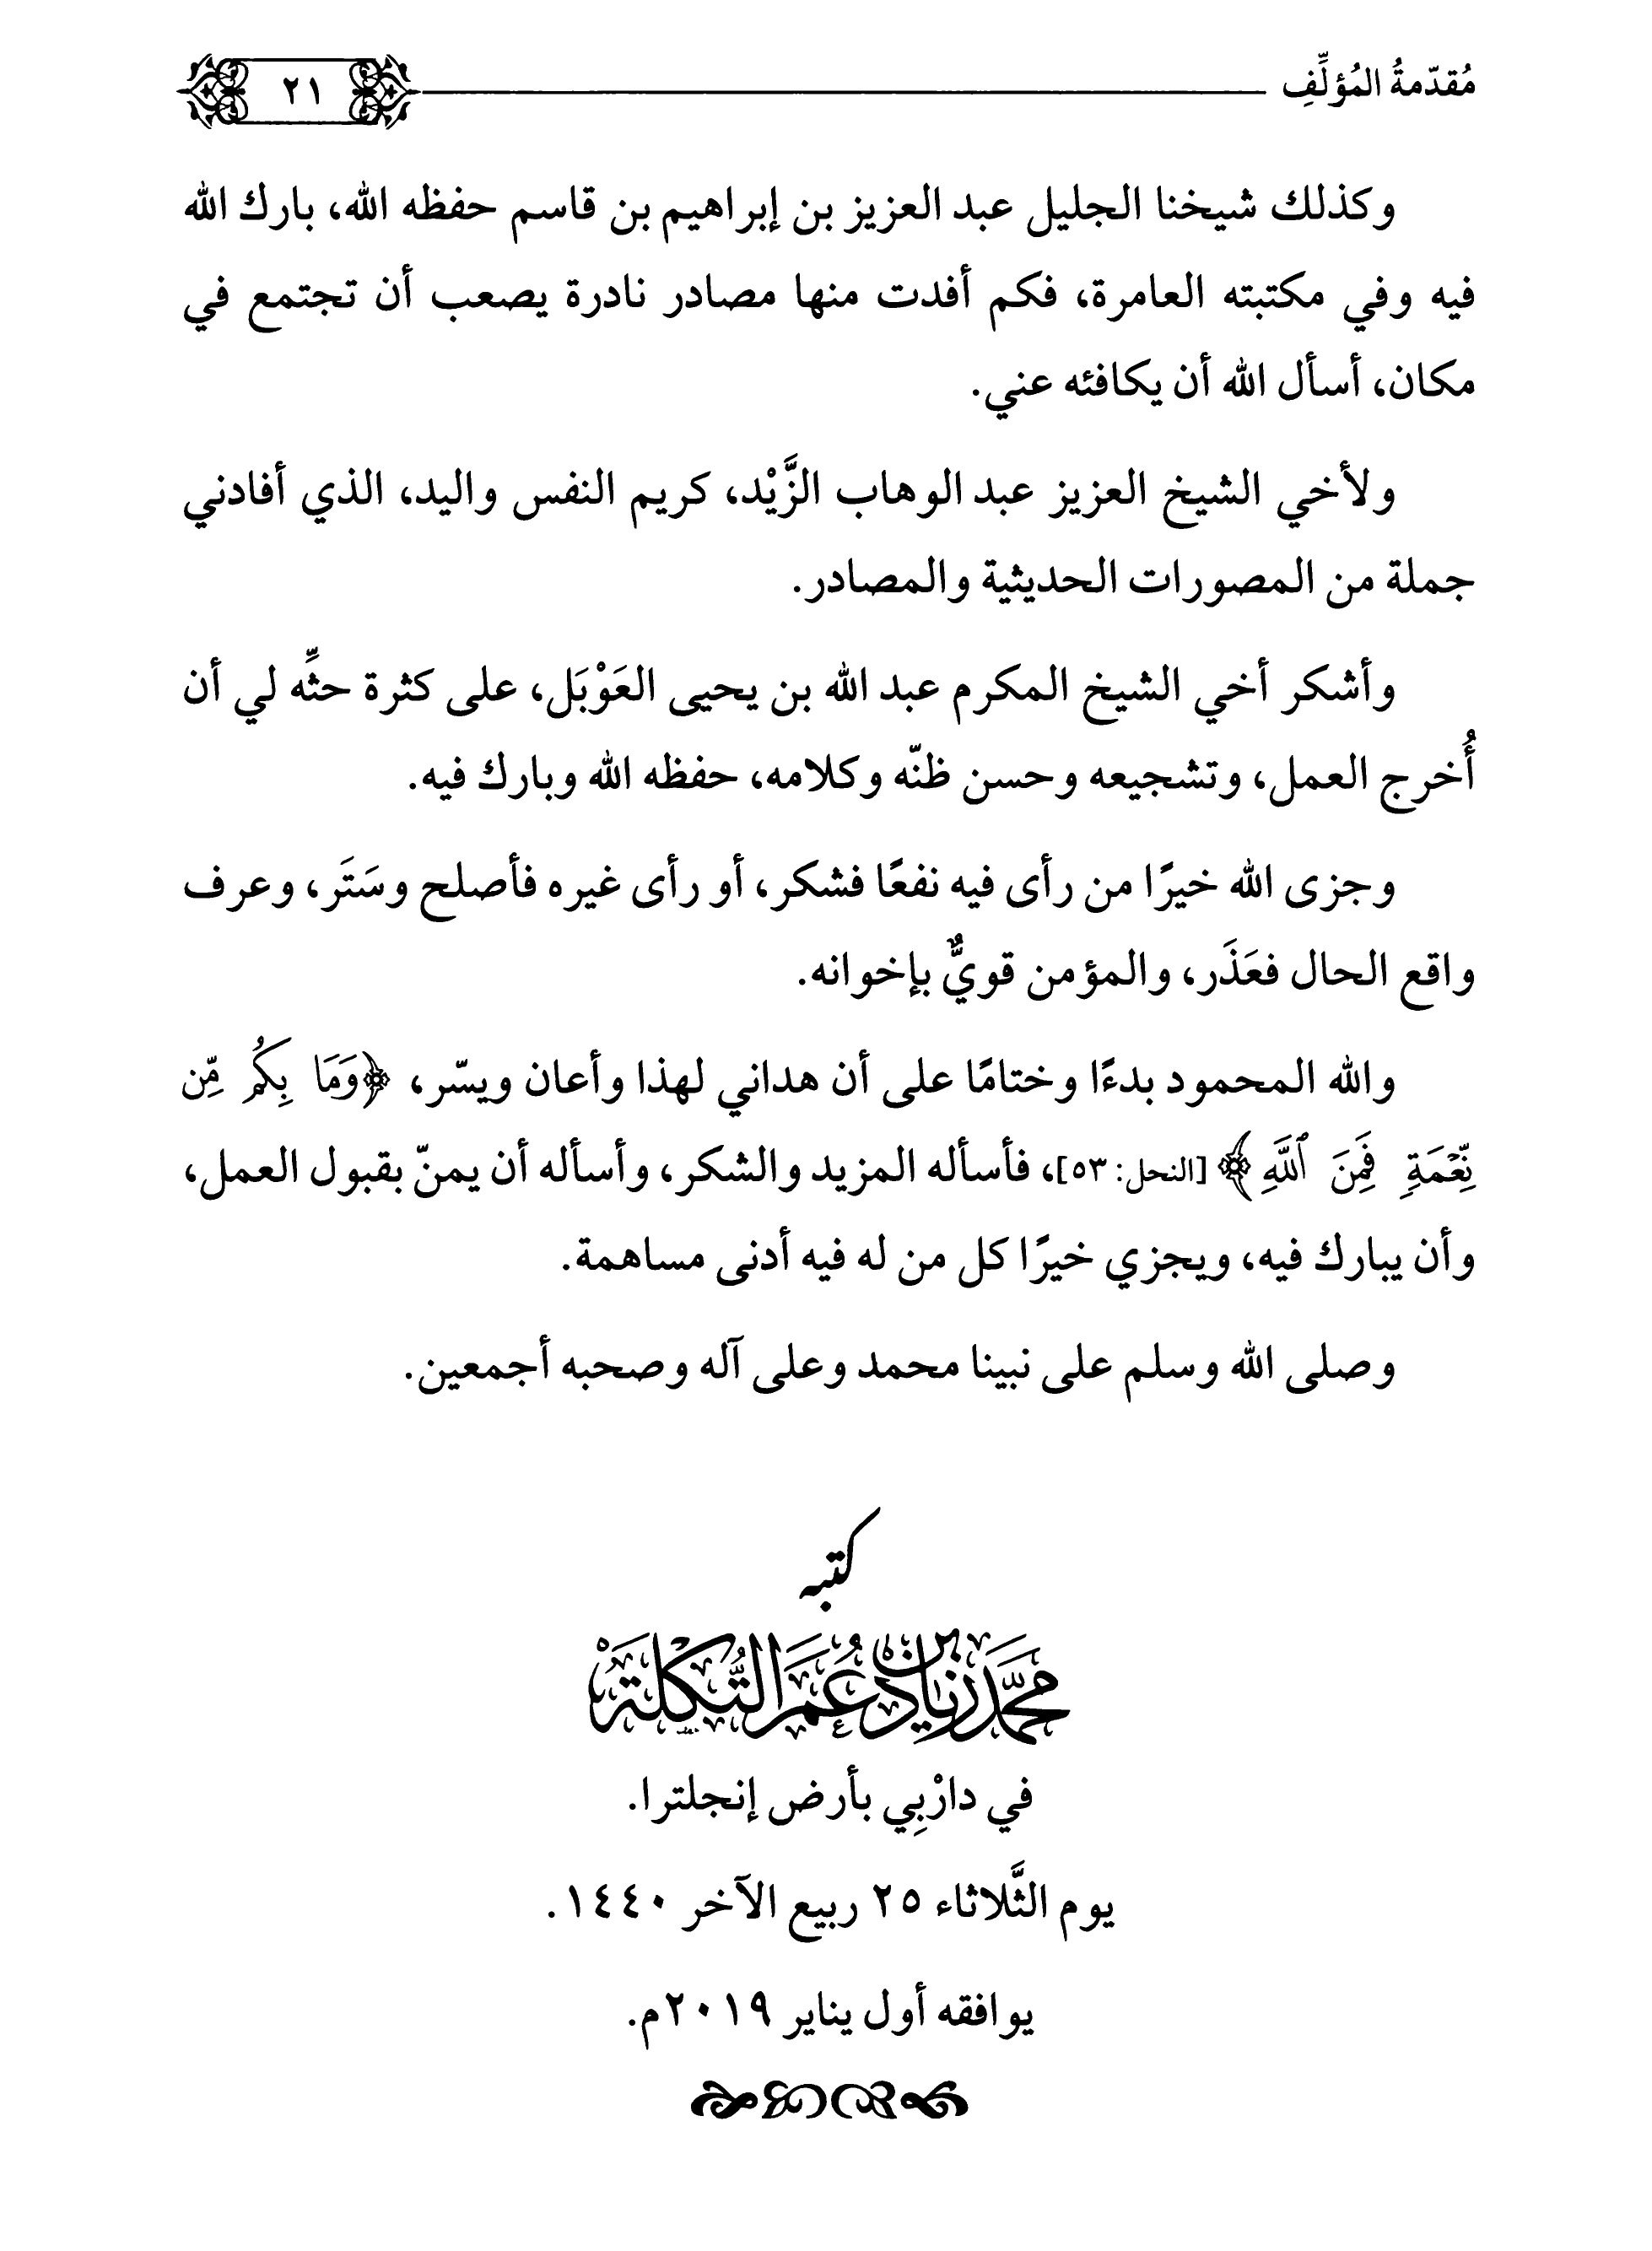 مُقدّمةُ المُؤلِّفِ ٢١
وكذلك شيخنا الجليل عبد العزيز بن إبراهيم بن قاسم حفظه الله، بارك الله
فيه وفي مكتبته العامرة، فكم أفدت منها مصادر نادرة يصعب أن تجتمع في
مكان، أسأل الله أن يكافئه عني.
ولأخي الشيخ العزيز عبد الوهاب الزَّيْد، كريم النفس واليد، الذي أفادني
جملة من المصورات الحديثية والمصادر.
وأشكر أخي الشيخ المكرم عبد الله بن يحيى العَوْبَل، على كثرة حثِّه لي أن
أُخرج العمل، وتشجيعه وحسن ظنّه وكلامه، حفظه الله وبارك فيه.
وجزى الله خيرًا من رأى فيه نفعًا فشكر، أو رأى غيره فأصلح وسَتَر، وعرف
واقع الحال فعَذَر، والمؤمن قويٌّ بإخوانه.
والله المحمود بدءًا وختامًا على أن هداني لهذا وأعان ويسّر، ﴿وَمَا بِكُم مِّن
نِّعْمَةٍ فَمِنَ ٱللَّهِ﴾ [النحل: ٥٣]، فأسأله المزيد والشكر، وأسأله أن يمنّ بقبول العمل،
وأن يبارك فيه، ويجزي خيرًا كل من له فيه أدنى مساهمة.
وصلى الله وسلم على نبينا محمد وعلى آله وصحبه أجمعين.
كتبه
مُحَمَّد زِيَاد بْن عُمَر التُّكْلَة
في دارْبِي بأرض إنجلترا.
يوم الثَّلاثاء ٢٥ ربيع الآخر ١٤٤٠.
يوافقه أول يناير ٢٠١٩م.